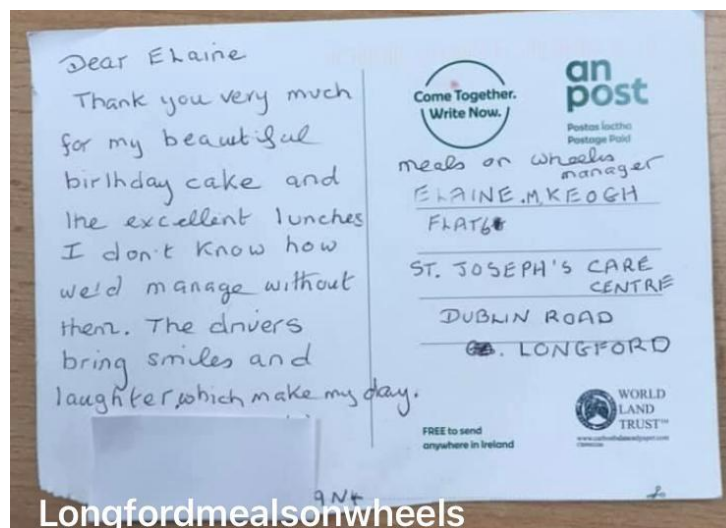 Dear Elaine
Thank you very much
for my beautiful
birthday cake and
the excellent lunches
I don't know how
we'd manage without
them. The drivers
bring smiles and
laughter, which make my day.
Come Together.
Write Now.
an
post
Postas íoctha
Postage Paid
meals on wheels
manager
ELAINE.M.KEOGH
FLAT6
ST. JOSEPH'S CARE
CENTRE
DUBLIN ROAD
CO. LONGFORD
FREE to send
anywhere in Ireland
WORLD
LAND
TRUST™
Longfordmealsonwheels